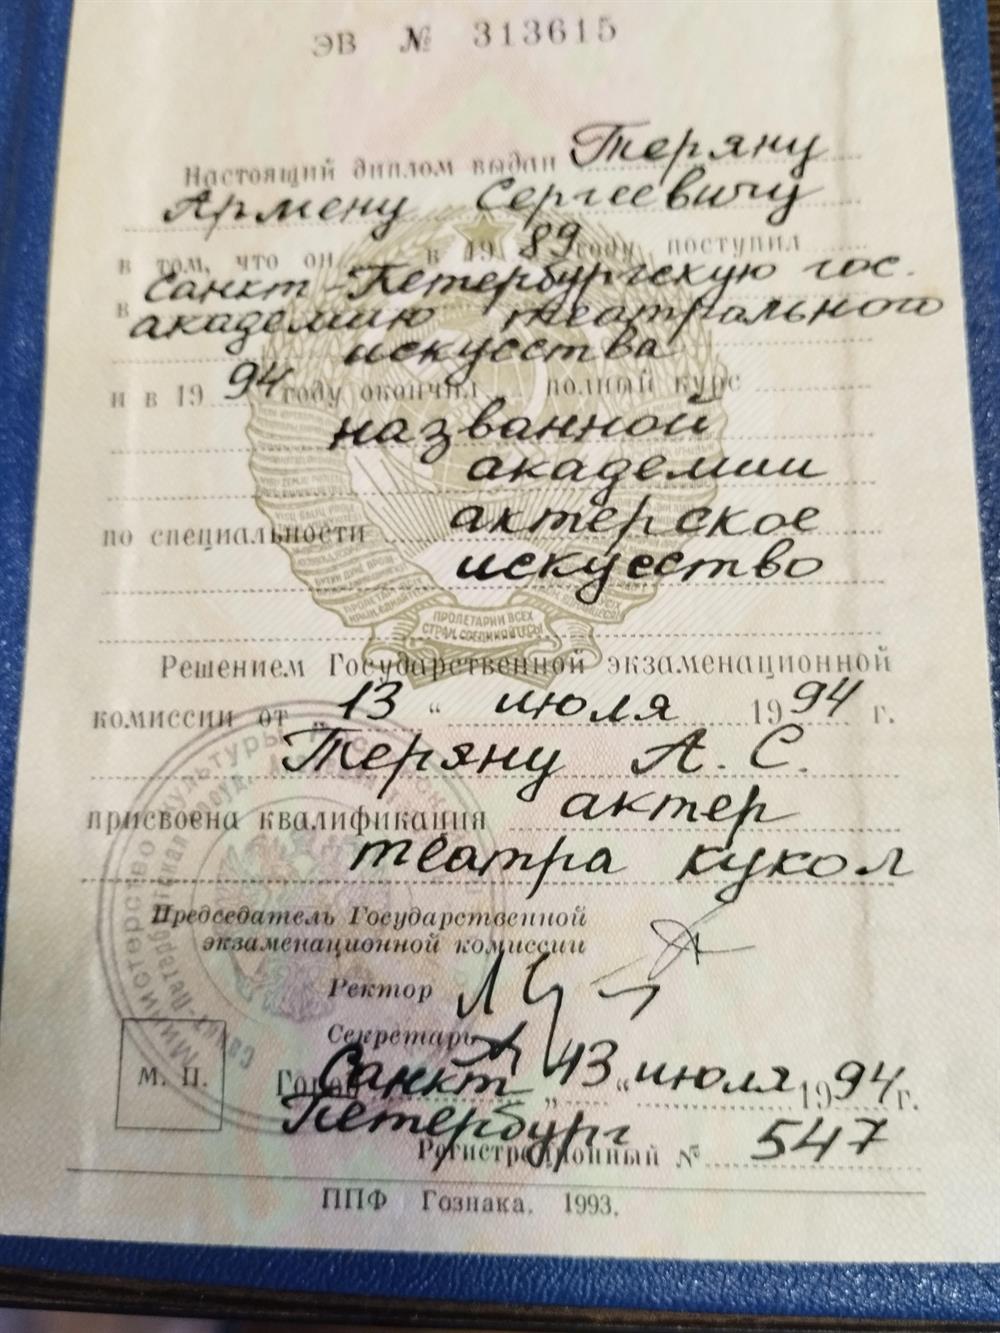 ЭВ № 313615
Настоящий диплом выдан Теряну
Армену Сергеевичу
в том, что он в 1989 году поступил
в Санкт-Петербургскую гос.
академию театрального
искусства
и в 1994 году окончил полный курс
названной
академии
по специальности актерское
искусство
ПРОЛЕТАРИИ ВСЕХ
СТРАН, СОЕДИНЯЙТЕСЬ!
Решением Государственной экзаменационной
комиссии от „13“ июля 1994 г.
Теряну А. С.
присвоена квалификация актер
театра кукол
Председатель Государственной
экзаменационной комиссии
Ректор
Секретарь
М. П.
Город Санкт „13“ июля 1994 г.
Петербург
Регистрационный № 547
ППФ Гознака. 1993.